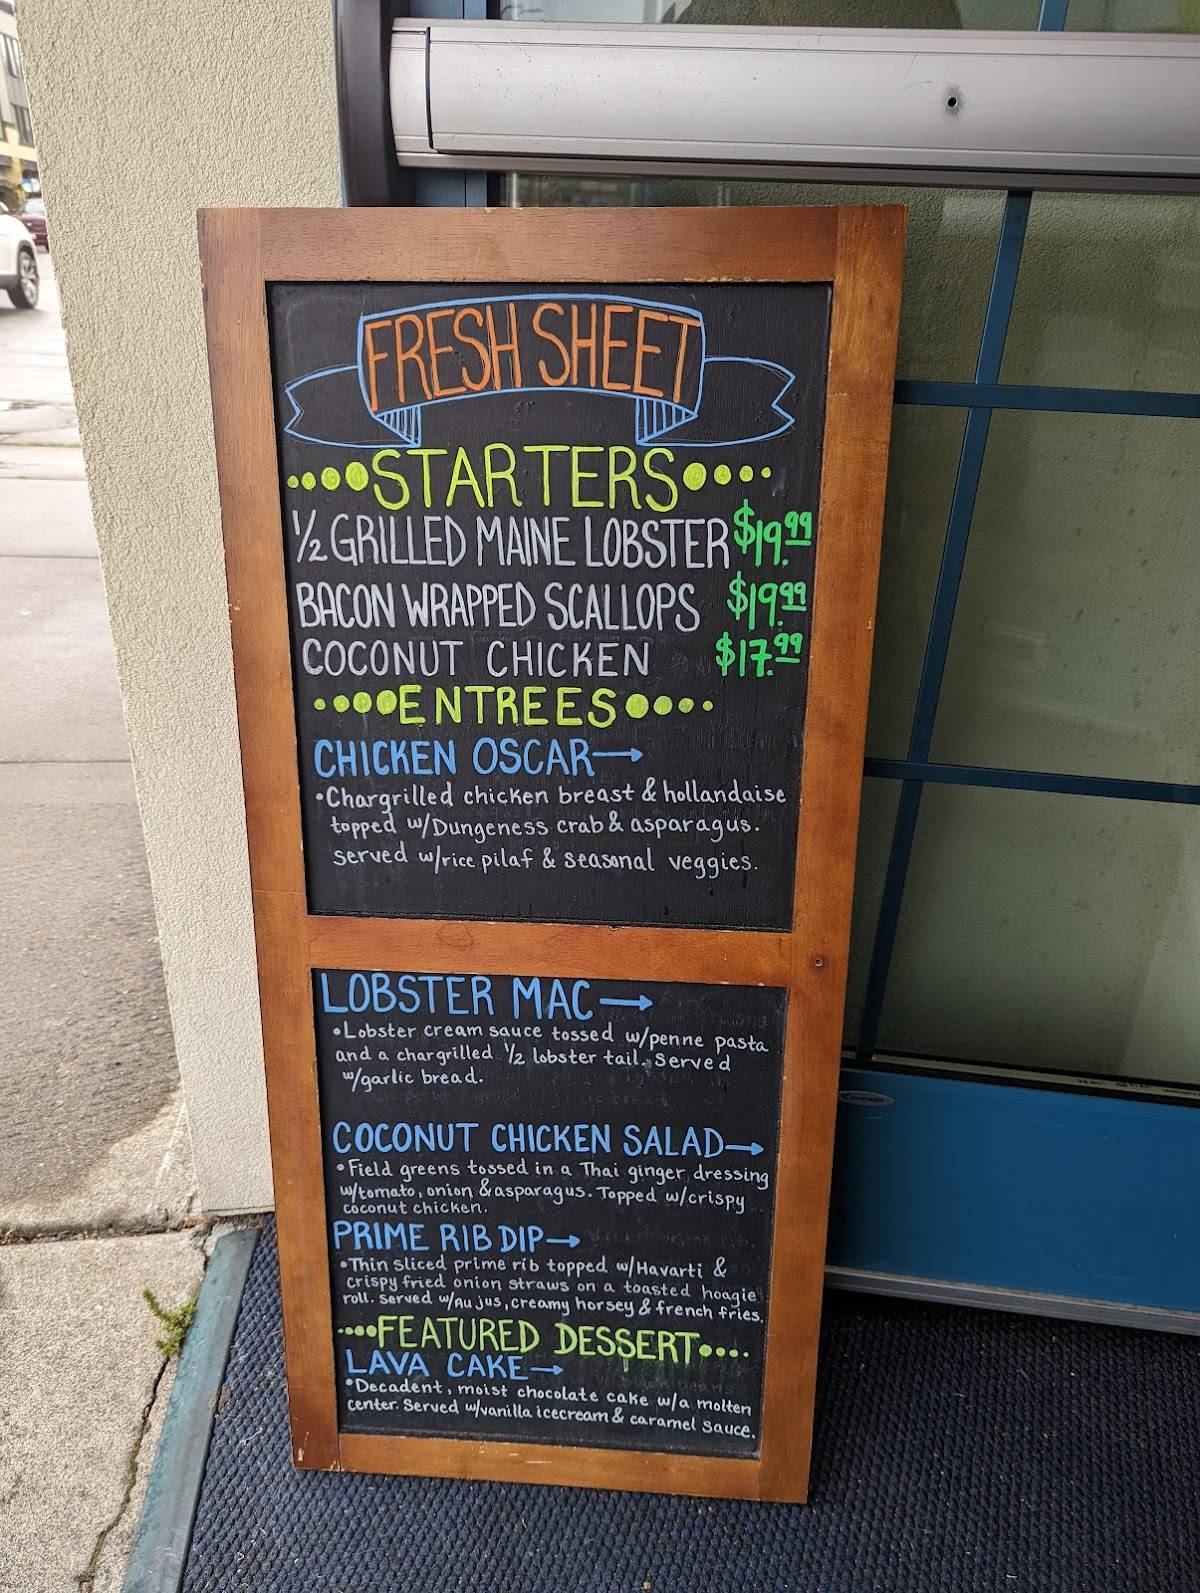 FRESH SHEET
STARTERS
½ GRILLED MAINE LOBSTER $19.99
BACON WRAPPED SCALLOPS $19.99
COCONUT CHICKEN $17.99
ENTREES
CHICKEN OSCAR→
•Chargrilled chicken breast & hollandaise
topped w/Dungeness crab & asparagus.
served w/rice pilaf & seasonal veggies.
LOBSTER MAC→
•Lobster cream sauce tossed w/penne pasta
and a chargrilled ½ lobster tail. Served
w/garlic bread.
COCONUT CHICKEN SALAD→
•Field greens tossed in a Thai ginger dressing
w/tomato, onion & asparagus. Topped w/crispy
coconut chicken.
PRIME RIB DIP→
•Thin sliced prime rib topped w/Havarti &
crispy fried onion straws on a toasted hoagie
roll. Served w/Au jus, creamy horsey & french fries.
FEATURED DESSERT
LAVA CAKE→
•Decadent, moist chocolate cake w/a molten
center. Served w/vanilla icecream & caramel sauce.